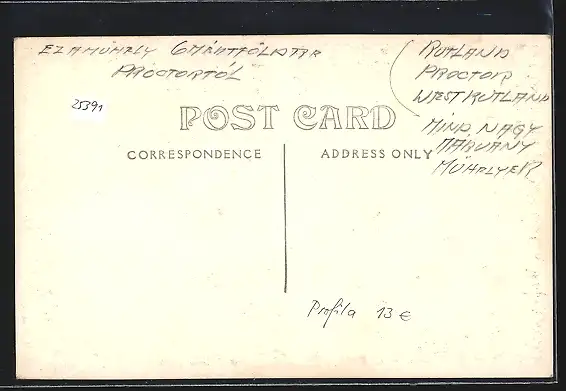 EZ A MŰHELY 6 MÉRTFÖLDTÁR
PROCTORTÓL
RUTLAND
PROCTOR
WEST RUTLAND
MIND NAGY
MÁRVÁNY
MŰHELYEK
25391
POST CARD
CORRESPONDENCE
ADDRESS ONLY
Profila 13 €